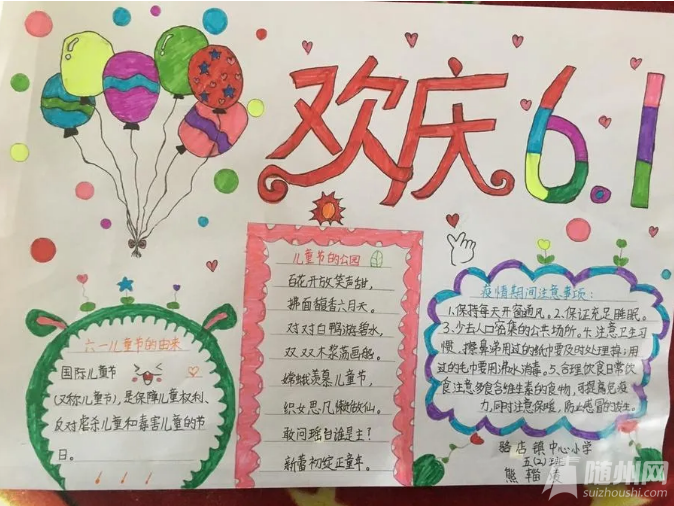 欢庆6.1
六一儿童节的由来
国际儿童节
(又称儿童节),是保障儿童权利、
反对虐杀儿童和毒害儿童的节
日。
儿童节的公园
百花开放笑声甜,
拂面馏香六月天。
对对白鸭游碧水,
双双木桨荡画艇。
嫦娥羡慕儿童节,
织女思凡做仙。
敢问瑶台谁是主?
新蕾初绽正童年。
疫情期间注意事项:
1.保持每天开窗通风,2.保证充足睡眠。
3.少去人口密集的公共场所。4.注意卫生习
惯、擦鼻涕用过的纸巾要及时处理掉;用
过的毛巾要用沸水消毒。5、合理饮食日常饮
食注意多食含维生素的食物,可提高免疫
力,同时注意保暖,防止感冒的发生。
骆店镇中心小学
五(2)班
熊
随州网
suizhoushi.com